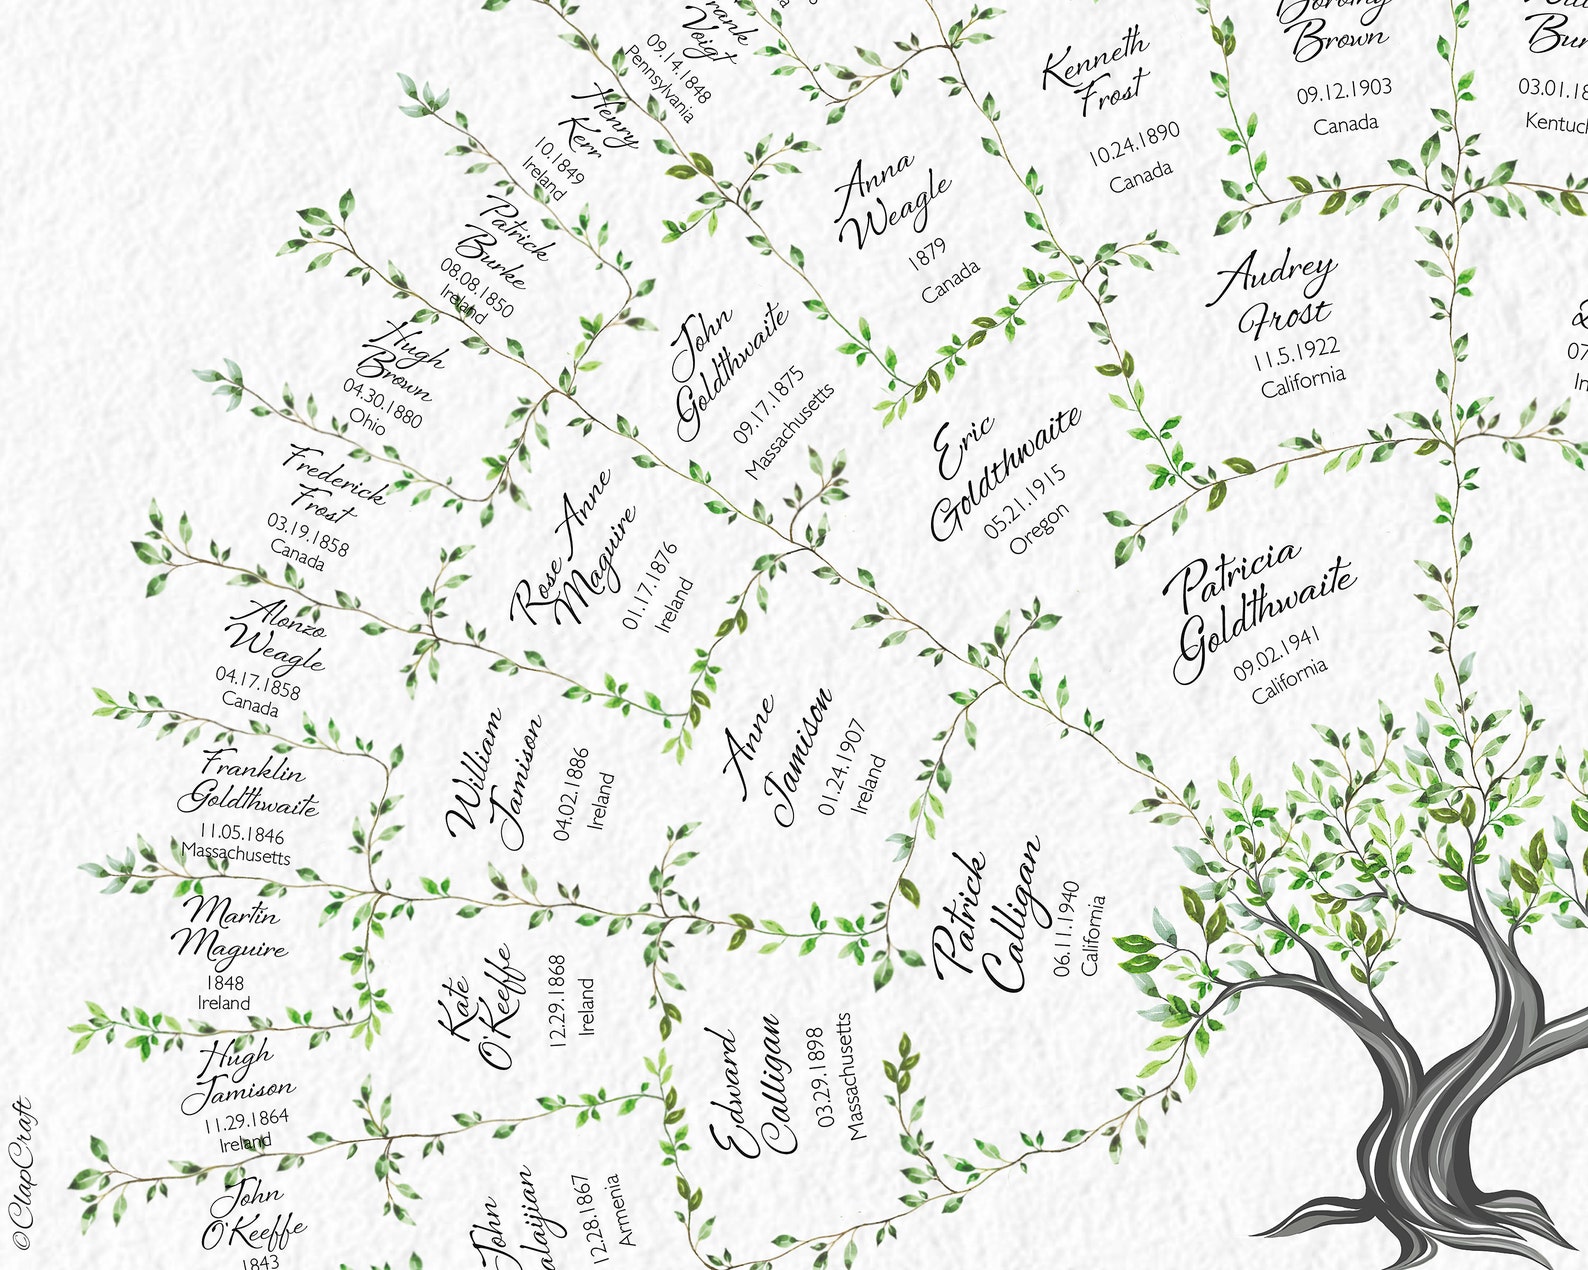 Frank
Voigt
09.14.1848
Pennsylvania
Henry
Kerr
10.1849
Ireland
Patrick
Burke
08.08.1850
Ireland
Hugh
Brown
04.30.1880
Ohio
Frederick
Frost
03.19.1858
Canada
Alonzo
Weagle
04.17.1858
Canada
Franklin
Goldthwaite
11.05.1846
Massachusetts
Martin
Maguire
1848
Ireland
Hugh
Jamison
11.29.1864
Ireland
John
O'Keeffe
1843
Kenneth
Frost
10.24.1890
Canada
Anna
Weagle
1879
Canada
John
Goldthwaite
09.17.1875
Massachusetts
Rose Anne
Maguire
01.17.1876
Ireland
William
Jamison
04.02.1886
Ireland
Kate
O'Keeffe
12.29.1868
Ireland
John
alaijian
12.28.1867
Armenia
Dorothy
Brown
09.12.1903
Canada
03.01.18
Kentuc
Audrey
Frost
11.5.1922
California
07
In
Eric
Goldthwaite
05.21.1915
Oregon
Anne
Jamison
01.24.1907
Ireland
Edward
Calligan
03.29.1898
Massachusetts
Patricia
Goldthwaite
09.02.1941
California
Patrick
Calligan
06.11.1940
California
©ClapCraft